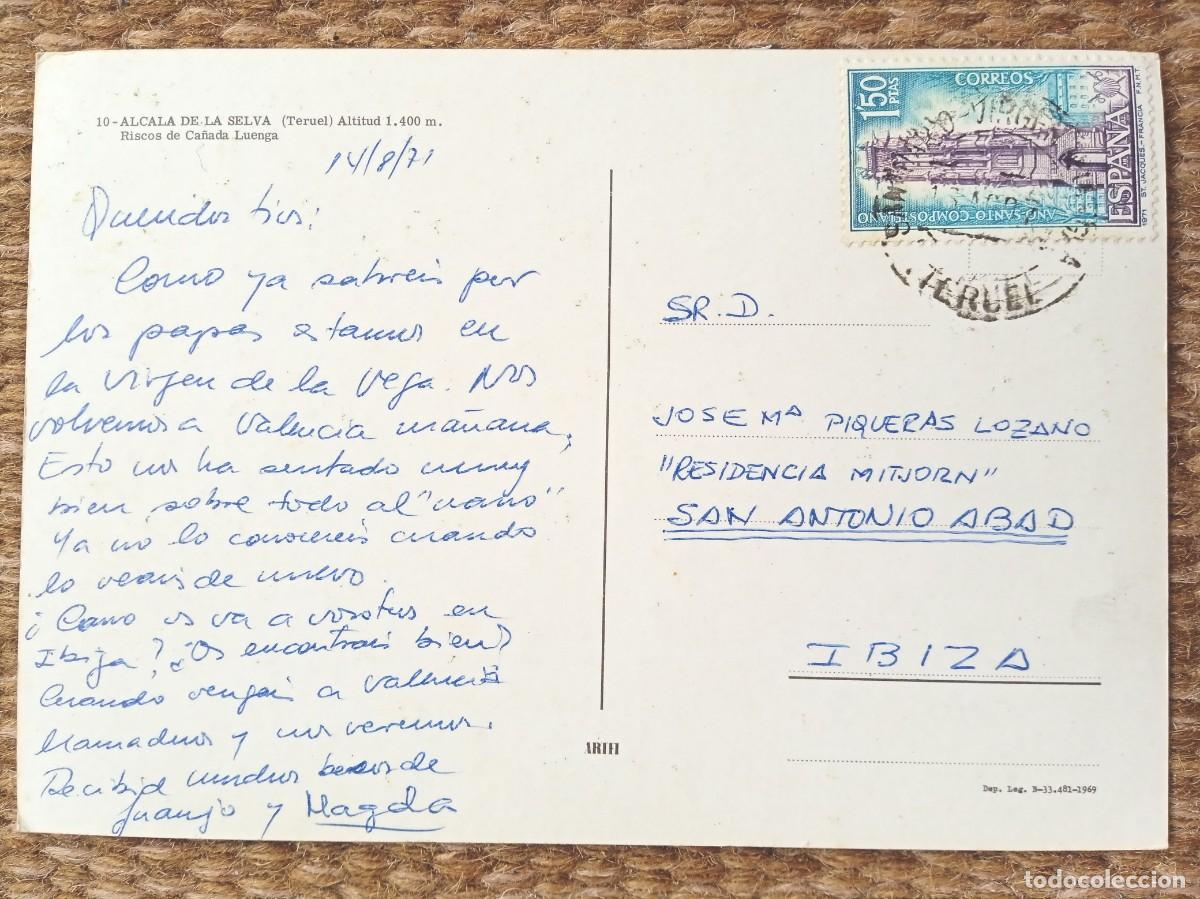 10-ALCALA DE LA SELVA (Teruel) Altitud 1.400 m.
Riscos de Cañada Luenga
14/8/71
Queridos tios:
Como ya sabreis por
los papas estamos en
la Virgen de la Vega. Nos
volvemos a Valencia mañana,
Esto nos ha sentado muy
bien, sobre todo al "nano"
Ya no lo conocereis cuando
lo veais de nuevo.
¿Como os va a vosotros en
Ibiza? ¿Os encontrais bien?
Cuando vengais a Valencia
llamadnos y nos veremos.
Recibid muchos besos de
Juanjo y Magda
1'50 PTAS
CORREOS
ESPAÑA
AÑO-SANTO-COMPOSTELANO
1971 ST. JACQUES-FRANCIA F.N.M.T.
TERUEL
SR. D.
JOSE Mª PIQUERAS LOZANO
"RESIDENCIA MITJORN"
SAN ANTONIO ABAD
IBIZA
ARTFI
Dep. Leg. B-33.481-1969
todocoleccion